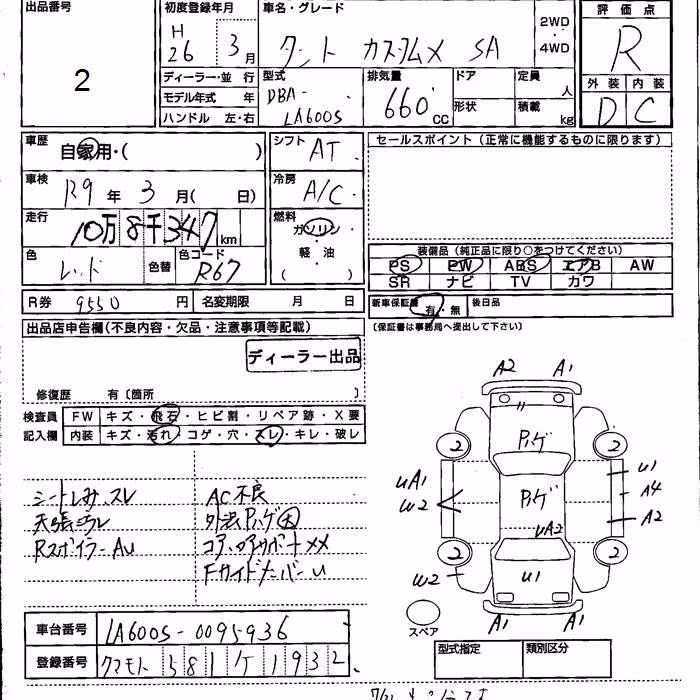 出品番号
2
初度登録年月
H
26 3月
ディーラー・並 行
モデル年式 年
ハンドル 左・右
車名・グレード
タント カスタムX SA
2WD
4WD
型式
DBA-
LA600S
排気量
660 CC
ドア
形状
定員
人
積載
kg
評価点
R
外装 内装
D C
車歴
自家用・( )
車検
R9 年 3 月( 日)
走行
10万8千347 km
色
レッド
色替
色コード
R67
シフト
AT
冷房
A/C
燃料
ガソリン
軽油
( )
セールスポイント(正常に機能するものに限ります)
装備品(純正品に限り○をつけてください)
PS PW ABS エアB AW
SR ナビ TV カワ
R券 9550 円 名変期限 月 日
新車保証書 有・無 後日品
(保証書は事務局へ提出して下さい)
出品店申告欄(不良内容・欠品・注意事項等記載)
ディーラー出品
修復歴 有〔箇所 〕
検査員 FW キズ・飛石・ヒビ割・リペア跡・X要
記入欄 内装 キズ・汚れ・コゲ・穴・スレ・キレ・破レ
シートしみ、スレ
天張ヨゴレ
Rスポイラー AU
AC不良
外装Pハゲ大
コアサポートXX
FサイドメンバーU
A2 A1
2 2
Pハゲ
UA1
W2
U1
A4
A2
Pハゲ
UA2
2 2
W2
U1
A1 A1
スペア
車台番号 LA600S-0095936
登録番号 クマモト 581 ケ 1932
型式指定 類別区分